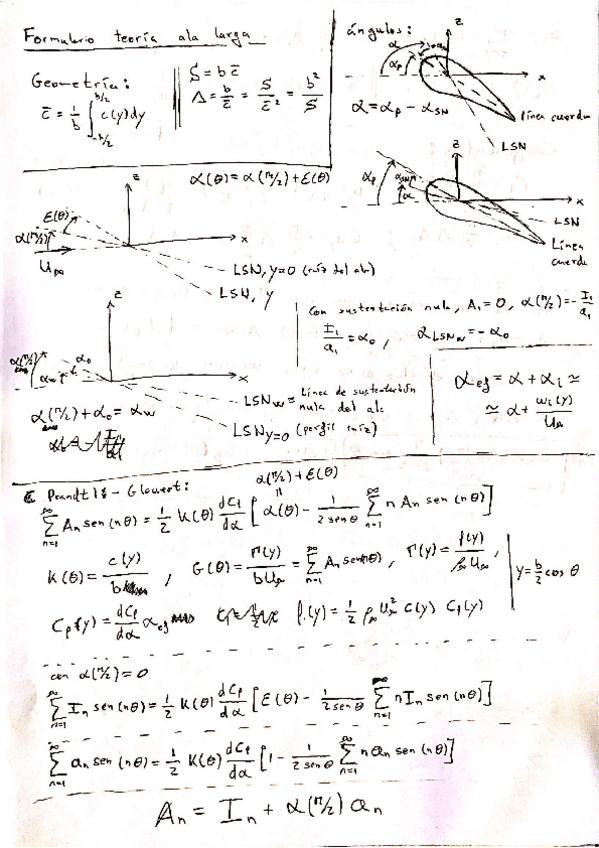 Formulario teoría ala larga
Geometría:
c̄ = 1/b ∫_{-b/2}^{b/2} c(y)dy
S = b c̄
Λ = b/c̄ = S/c̄² = b²/S
ángulos:
z
α
α_p
x
α = α_p - α_SN
línea cuerda
LSN
z
α_p
α_SN
α
x
LSN
Línea cuerda
α(θ) = α(π/2) + ε(θ)
z
ε(θ)
α(π/2)
x
U∞
LSN, y=0 (raíz del ala)
LSN, y
Con sustentación nula, A₁ = 0, α(π/2) = - I₁/a₁
I₁/a₁ = α₀ , α_LSN_W = - α₀
z
α(π/2)
α₀
α_w
x
LSN_W = Línea de sustentación nula del ala
LSN_y=0 (perfil raíz)
α(π/2) + α₀ = α_w
α_ef = α + α_i ≃
≃ α + w_i(y)/U∞
Prandtl - Glauert:
α(π/2) + ε(θ)
∑_{n=1}^{∞} An sen(nθ) = 1/2 K(θ) dCl/dα [α(θ) - 1/(2 sen θ) ∑_{n=1}^{∞} n An sen(nθ)]
K(θ) = c(y)/b , G(θ) = Γ(y)/(b U∞) = ∑_{n=1}^{∞} An sen(nθ), Γ(y) = l(y)/(ρ∞ U∞) ,
y = b/2 cos θ
Cl(y) = dCl/dα α_ef
l(y) = 1/2 ρ∞ U∞² c(y) Cl(y)
con α(π/2) = 0
∑_{n=1}^{∞} In sen(nθ) = 1/2 K(θ) dCl/dα [ε(θ) - 1/(2 sen θ) ∑_{n=1}^{∞} n In sen(nθ)]
∑_{n=1}^{∞} an sen(nθ) = 1/2 K(θ) dCl/dα [1 - 1/(2 sen θ) ∑_{n=1}^{∞} n an sen(nθ)]
An = In + α(π/2) an